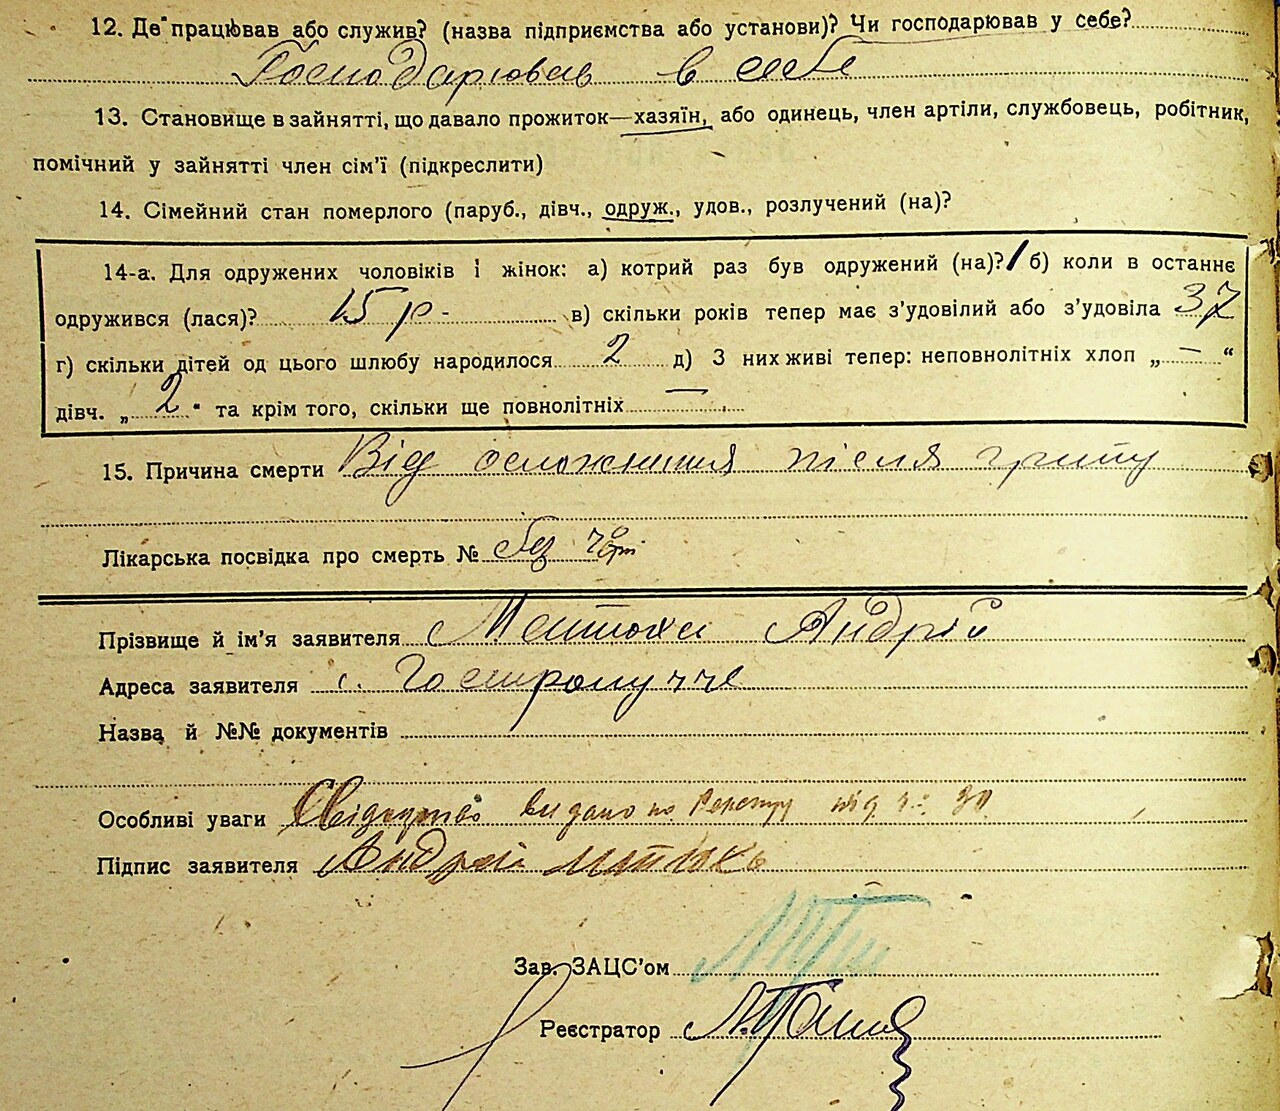 12. Де працював або служив? (назва підприємства або установи)? Чи господарював у себе?
Господарював в себе
13. Становище в зайнятті, що давало прожиток—хазяїн, або одинець, член артіли, службовець, робітник,
помічний у зайнятті член сім’ї (підкреслити)
14. Сімейний стан померлого (паруб., дівч., одруж., удов., розлучений (на)?
14-а. Для одружених чоловіків і жінок: а) котрий раз був одружений (на)? 1 б) коли в останнє
одружився (лася)? 15 р - в) скільки років тепер має з’удовілий або з’удовіла 37
г) скільки дітей од цього шлюбу народилося 2 д) З них живі тепер: неповнолітніх хлоп „ — “
дівч. „ 2 “ та крім того, скільки ще повнолітніх —
15. Причина смерти Від осложнення після грипу
Лікарська посвідка про смерть №
Прізвище й ім’я заявителя Андрій
Адреса заявителя с. Гостролуччє
Назва й №№ документів
Особливі уваги Свідоцтво видано по
Підпис заявителя Андрей
Зав. ЗАЦС’ом
Реєстратор